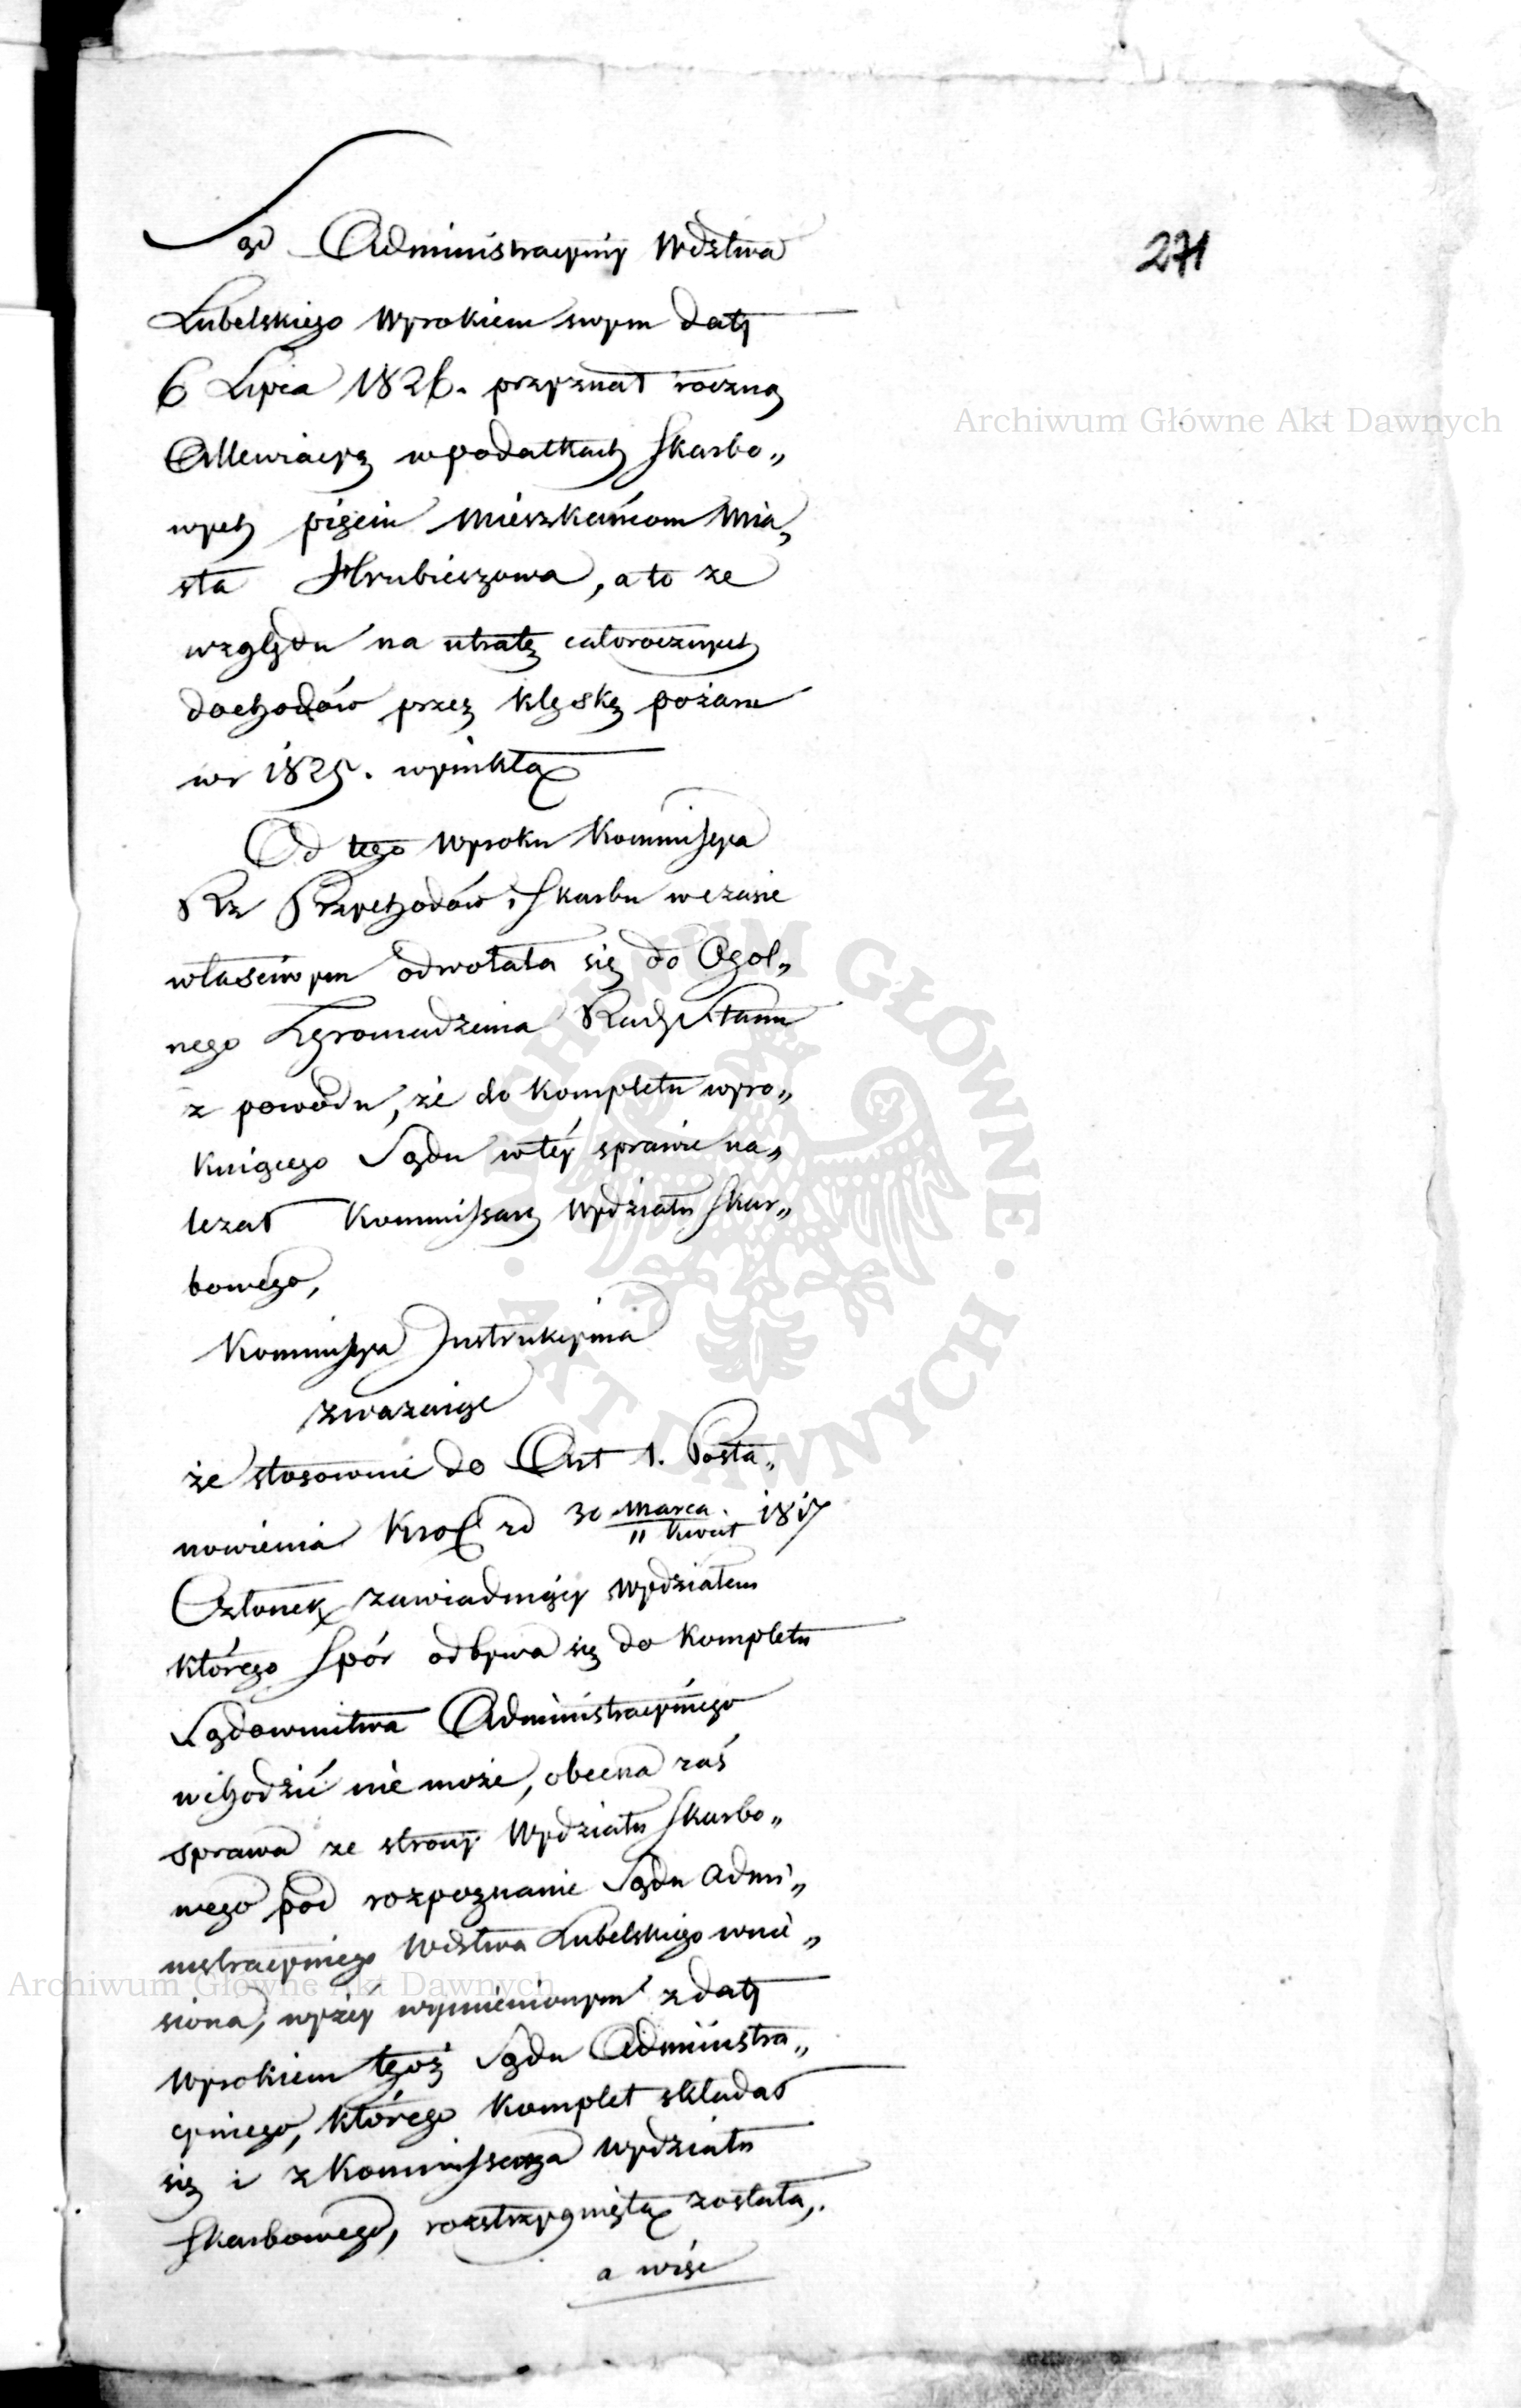 271
Sąd Administracyiny Wdztwa
Lubelskiego Wyrokiem swym daty
6 Lipca 1826. przyznał roczną
Allewiacyę w podatkach skarbo„
wych pięciu Mieszkańcom Mia„
sta Hrubieszowa, a to ze
względu na utratę całorocznych
dochodów przez klęskę pożaru
w r 1825. wynikłą
Od tego Wyroku Kommissya
Rz Przychodów i Skarbu w czasie
właściwym odwołała się do Ogol„
nego Zgromadzenia Rady Stanu
z powodu, że do kompletu wyro„
kuiącego Sądu w téy sprawie na„
leżał Kommissarz Wydziału Skar„
bowégo,
Kommissya Instrukcyina
zważaiąc
że stosownie do Art 1. Posta„
nowienia Król zd 30 Marca / 11 Kwiet 1817
Członek zawiaduiący Wydziałem
którégo Spór odbywa się do Kompletu
Sądownictwa Administracyinego
wchodzić nie może, obecna zaś
sprawa ze strony Wydziału Skarbo„
wego pod rozpoznanie Sądu Admi„
nistracyinego Wdztwa Lubelskiego wnie„
siona, wyżéy wymienionym z daty
Wyrokiem tegoż Sądu Administra„
cyinego, którego Komplet składał
się i z Kommissarza Wydziału
Skarbowego, rozstrzygniętą została,.
a więc
Archiwum Główne Akt Dawnych
Archiwum Główne Akt Dawnych
ARCHIWUM GŁÓWNE · AKT DAWNYCH ·